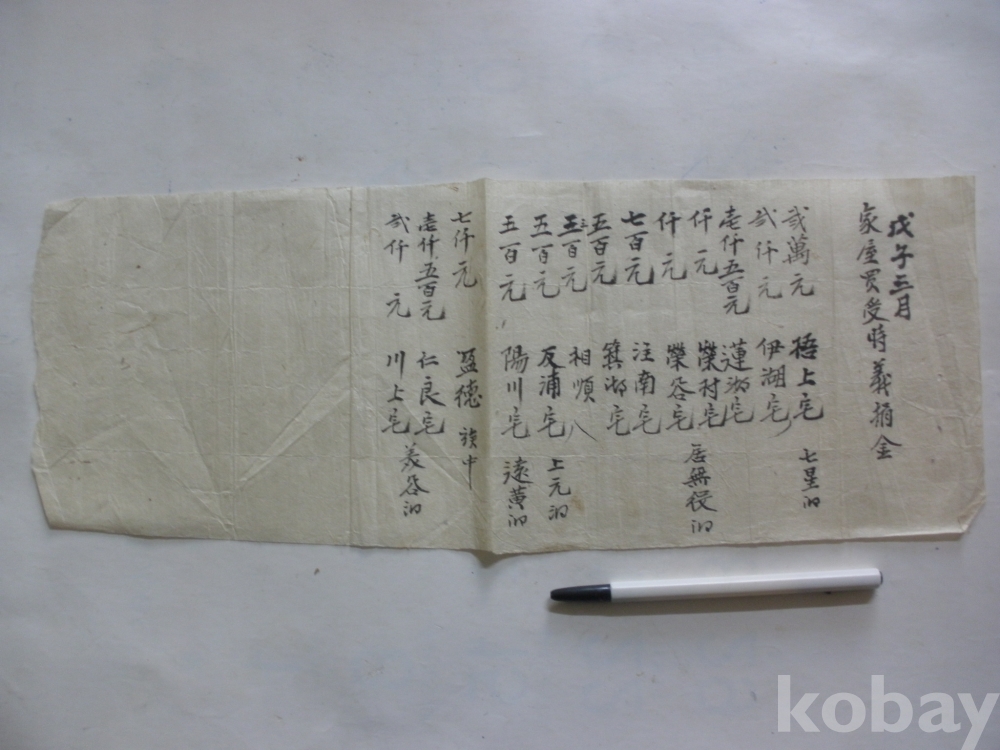 戊子三月
家座買受時義捐金
弐萬元 梧上宅 七星的
弐仟元 伊湖宅
壱仟五百元 蓮湖宅
仟元 榮村宅 居無役的
仟元 榮谷宅
七百元 注南宅
五百元 箕湖宅
五百元 相順
五百元 友浦宅 上元的
五百元 陽川宅 遠黄的
七仟元 盈德 族中
壱仟五百元 仁良宅
弐仟元 川上宅 美谷的
kobay